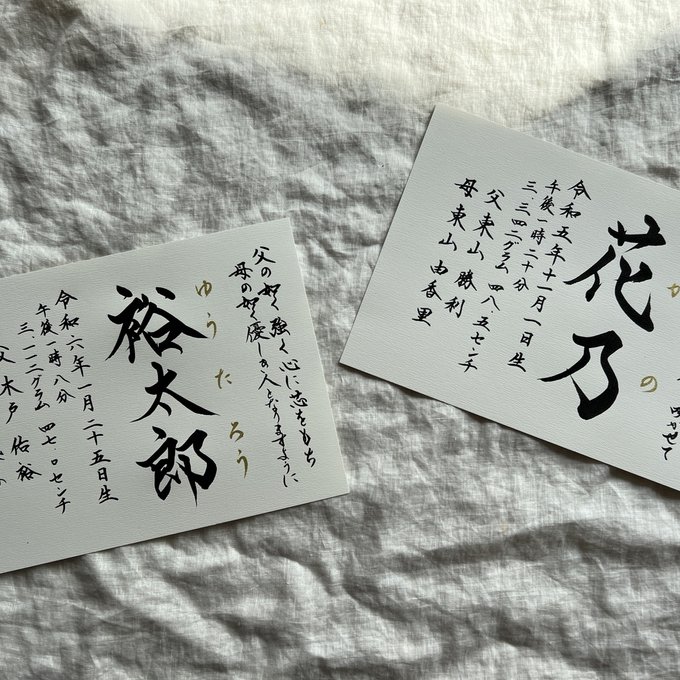 父の如く強く心に芯をもち
母の如く優しき人となりますように
ゆうたろう
裕太郎
令和六年一月二十五日生
午後一時八分
三、一一二グラム 四七.〇センチ
父 木戸 佑裕
かせて
かの
花乃
令和五年十一月一日生
午後一時二十分
三、三四二グラム 四八.五センチ
父 東山 勝利
母 東山 由香里